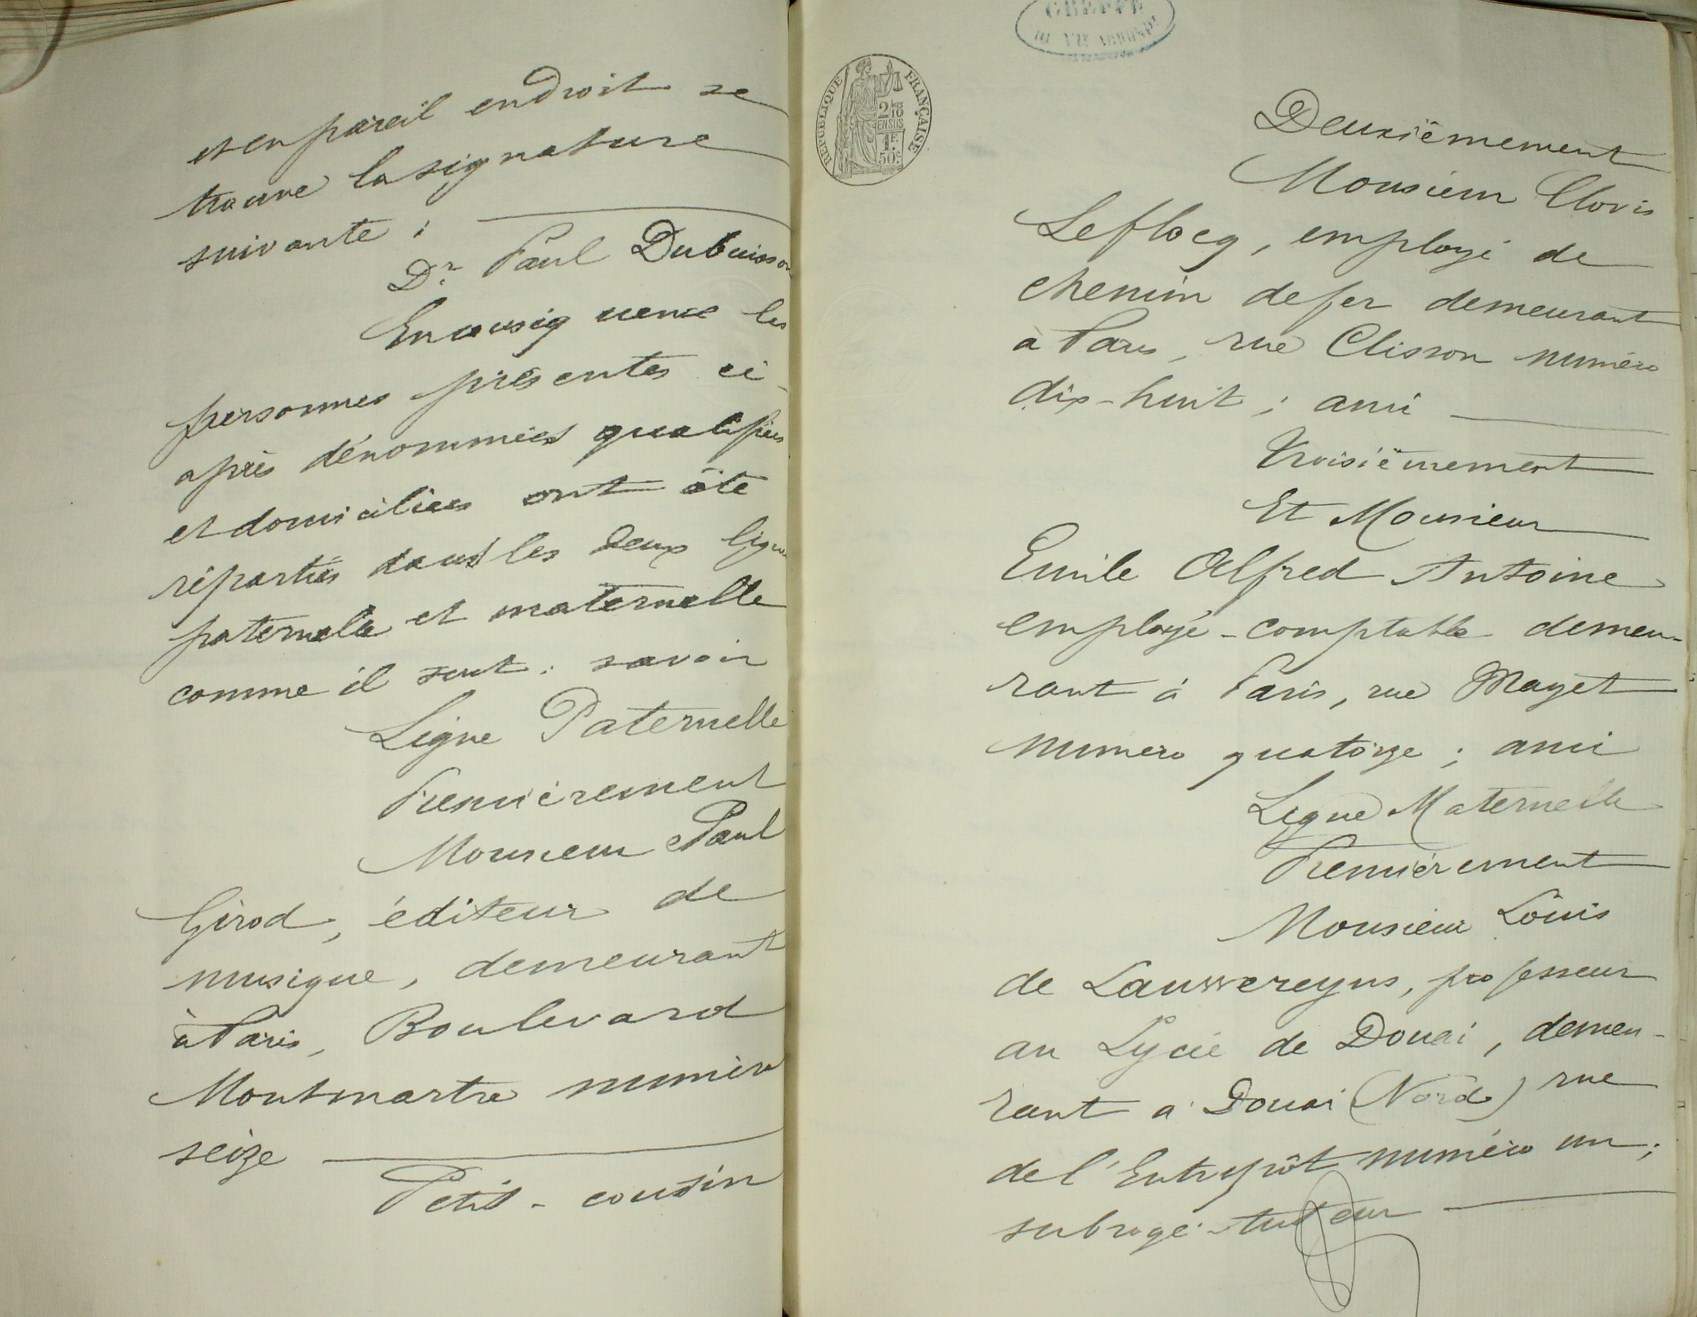 et en pareil endroit se
trouve la signature
suivante :
Dr Paul Dubuisson
En conséquence les
personnes présentes ci-
après dénommées qualifiées
et domiciliées ont été
réparties dans les deux lignes
paternelle et maternelle
comme il suit : savoir
Ligne Paternelle
Premièrement
Monsieur Paul
Girod, éditeur de
musique, demeurant
à Paris, Boulevard
Montmartre numéro
seize
Petit-cousin
GREFFE
RÉPUBLIQUE FRANÇAISE
2/10
EN SUS
1F
50c
Deuxièmement
Monsieur Clovis
Leflocq, employé de
chemin de fer demeurant
à Paris, rue Clisson numéro
dix-huit ; ami
Troisièmement
Et Monsieur
Emile Alfred Antoine
employé-comptable demeu-
rant à Paris, rue Mayet
numéro quatorze ; ami
Ligne Maternelle
Premièrement
Monsieur Louis
de Lauwereyns, professeur
au Lycée de Douai, demeu-
rant à Douai (Nord) rue
de l'Entrepôt numéro un ;
subrogé-tuteur